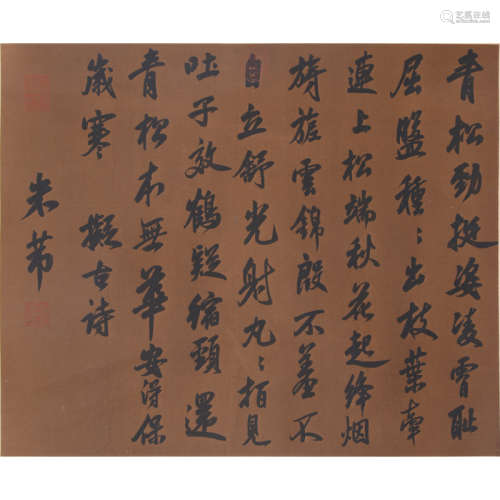 青松勁挺姿凌霄耻
屈盤種〻出枝葉牽
連上松端秋花起絳烟
旖旎雲錦殷不羞不
自立舒光射丸〻柏見
吐子效鶴疑縮頸還
青松本無華安得保
歲寒 擬古詩
米芾
艺狐在线